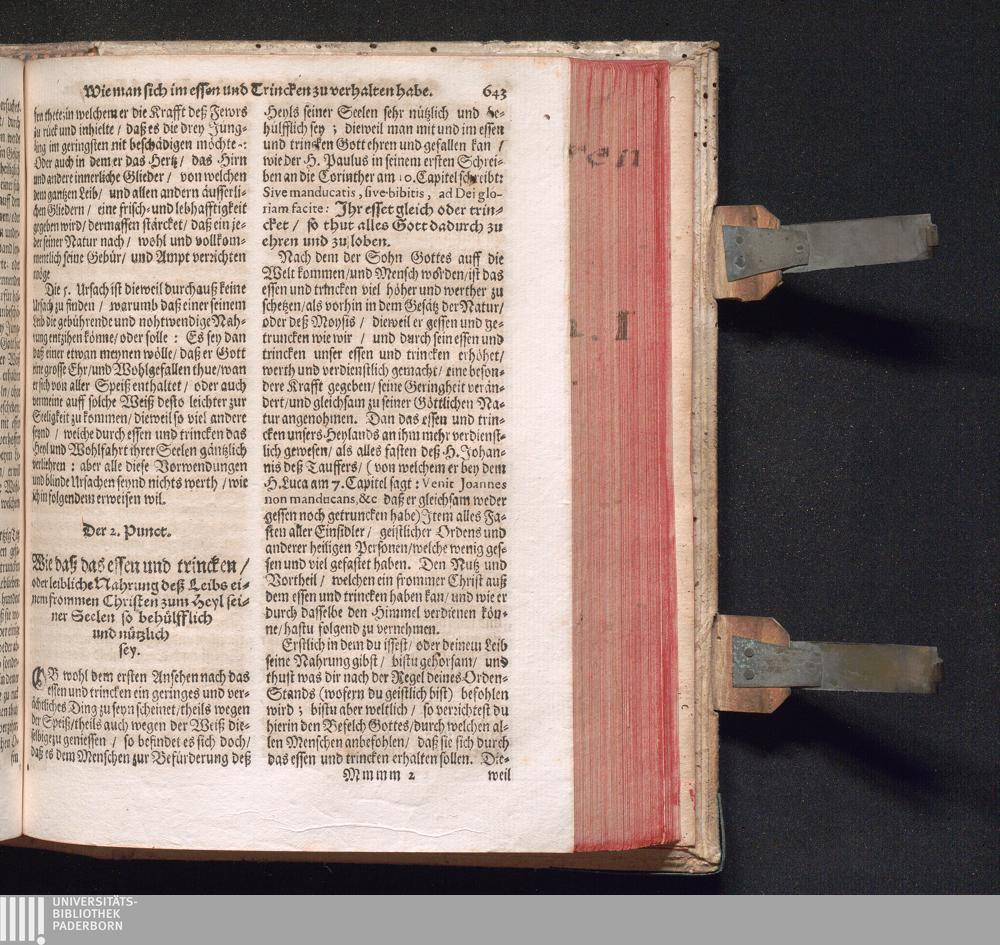 Wie man sich im essen und Trincken zu verhalten habe. 643
sen thett: in welchem er die Krafft deß Fewrs
zu rück und inhielte / daß es die drey Jung-
ling im geringsten nit beschädigen möchte-:
Oder auch in dem er das Hertz / das Hirn
und andere innerliche Glieder / von welchen
dem gantzen Leib / und allen andern äusserli-
chen Gliedern / eine frisch- und lebhafftigkeit
gegeben wird / dermassen stärcket / daß ein je-
der seiner Natur nach / wohl und vollkom-
mentlich seine Gebür / und Ampt verzichten
möge
Die 5. Ursach ist dieweil durchauß keine
Ursach zu finden / warumb daß einer seinem
Leib die gebührende und nohtwendige Nah-
rung entzihen könne / oder solle : Es sey dan
daß einer etwan meynen wölle / daß er Gott
eine grosse Ehr / und Wohlgefallen thue / wan
er sich von aller Speiß enthaltet / oder auch
vermeine auff solche Weiß desto leichter zur
Seeligkeit zu kommen / dieweil so viel andere
seynd / welche durch essen und trincken das
Heyl und Wohlfahrt ihrer Seelen gäntzlich
verliehren : aber alle diese Vorwendungen
und blinde Ursachen seynd nichts werth / wie
ich in folgendem erweisen wil.
Der 2. Punct.
Wie daß das essen und trincken /
oder leibliche Nahrung deß Leibs ei-
nem frommen Christen zum Heyl sei-
ner Seelen so behülfflich
und nützlich
sey.
OB wohl dem ersten Ansehen nach das
essen und trincken ein geringes und ver-
ächtliches Ding zu seyn scheinet / theils wegen
der Speiß / theils auch wegen der Weiß die-
selbige zu geniessen / so befindet es sich doch /
daß es dem Menschen zur Befürderung deß
Heyls seiner Seelen sehr nützlich und be-
hülfflich sey ; dieweil man mit und im essen
und trincken Gott ehren und gefallen kan /
wie der H. Paulus in seinem ersten Schrei-
ben an die Corinther am 10. Capitel schreibt:
Sive manducatis, sive bibitis, ad Dei glo-
riam facite: Ihr esset gleich oder trin-
cket / so thut alles Gott dadurch zu
ehren und zu loben.
Nach dem der Sohn Gottes auff die
Welt kommen / und Mensch worden / ist das
essen und trincken viel höher und werther zu
schetzen / als vorhin in dem Gesätz der Natur /
oder deß Moysis / dieweil er gessen und ge-
truncken wie wir / und durch sein essen und
trincken unser essen und trincken erhöhet /
werth und verdienstlich gemacht / eine beson-
dere Krafft gegeben / seine Geringheit verän-
dert / und gleichsam zu seiner Göttlichen Na-
tur angenohmen. Dan das essen und trin-
cken unsers Heylands an ihm mehr verdienst-
lich gewesen / als alles fasten deß H. Johan-
nis deß Tauffers / (von welchem er bey dem
H. Luca am 7. Capitel sagt : Venit Joannes
non manducans, &c daß er gleichsam weder
gessen noch getruncken habe) Item alles Fa-
sten aller Einsidler / geistlicher Ordens und
anderer heiligen Personen / welche wenig ges-
sen und viel gefastet haben. Den Nutz und
Vortheil / welchen ein frommer Christ auß
dem essen und trincken haben kan / und wie er
durch dasselbe den Himmel verdienen kön-
ne / hastu folgend zu vernehmen.
Erstlich in dem du issest / oder deinem Leib
seine Nahrung gibst / bistu gehorsam / und
thust was dir nach der Regel deines Orden-
Stands (wofern du geistlich bist) befohlen
wird ; bistu aber weltlich / so verzichtest du
hierin den Befelch Gottes / durch welchen al-
len Menschen anbefohlen / daß sie sich durch
das essen und trincken erhalten sollen. Die-
Mmmm 2 weil
UNIVERSITÄTS-
BIBLIOTHEK
PADERBORN